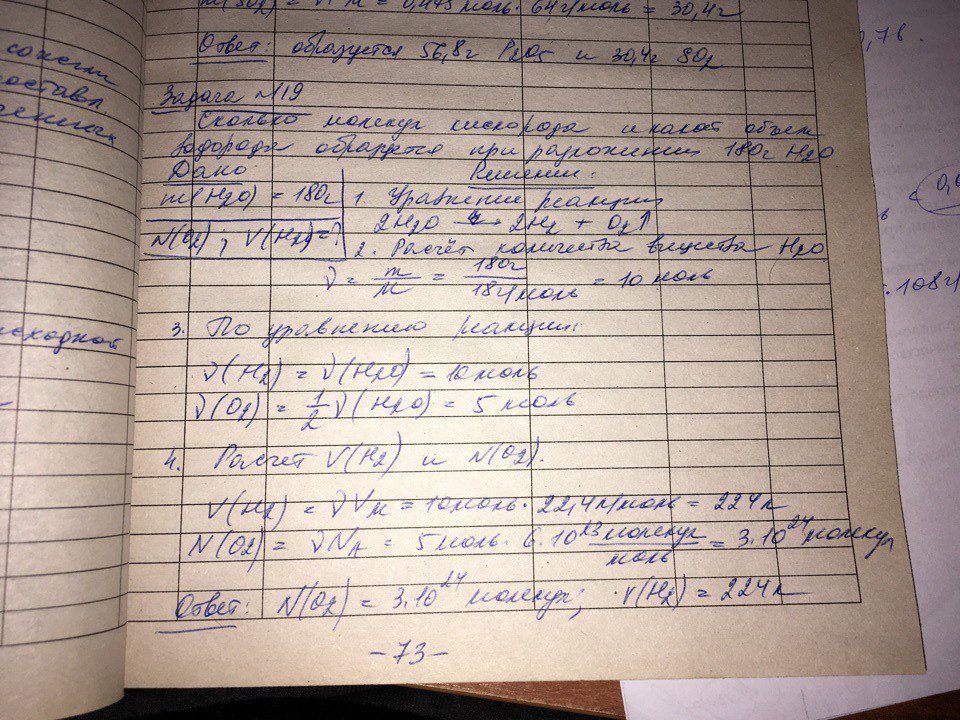 m(SO₂) = ν·M = 0,475 моль · 64 г/моль = 30,4г
Ответ: образуется 56,8г P₂O₅ и 30,4г SO₂
Задача N19
Сколько молекул кислорода и какой объем
водорода образуется при разложении 180г H₂O
Дано
Решение:
m(H₂O) = 180г
1. Уравнение реакции
2H₂O → 2H₂ + O₂↑
N(O₂); V(H₂)=?
2. Расчёт количества вещества H₂O
ν = m/M = 180г/18г/моль = 10 моль
3. По уравнению реакции:
ν(H₂) = ν(H₂O) = 10 моль
ν(O₂) = 1/2 ν(H₂O) = 5 моль
4. Расчет V(H₂) и N(O₂).
V(H₂) = νVм = 10моль · 22,4л/моль = 224л
N(O₂) = νNA = 5 моль · 6·10²³ молекул/моль = 3·10²⁴ молекул
Ответ: N(O₂) = 3·10²⁴ молекул; V(H₂) = 224л
-73-
сожгли
исходной
0,7 в.
108г